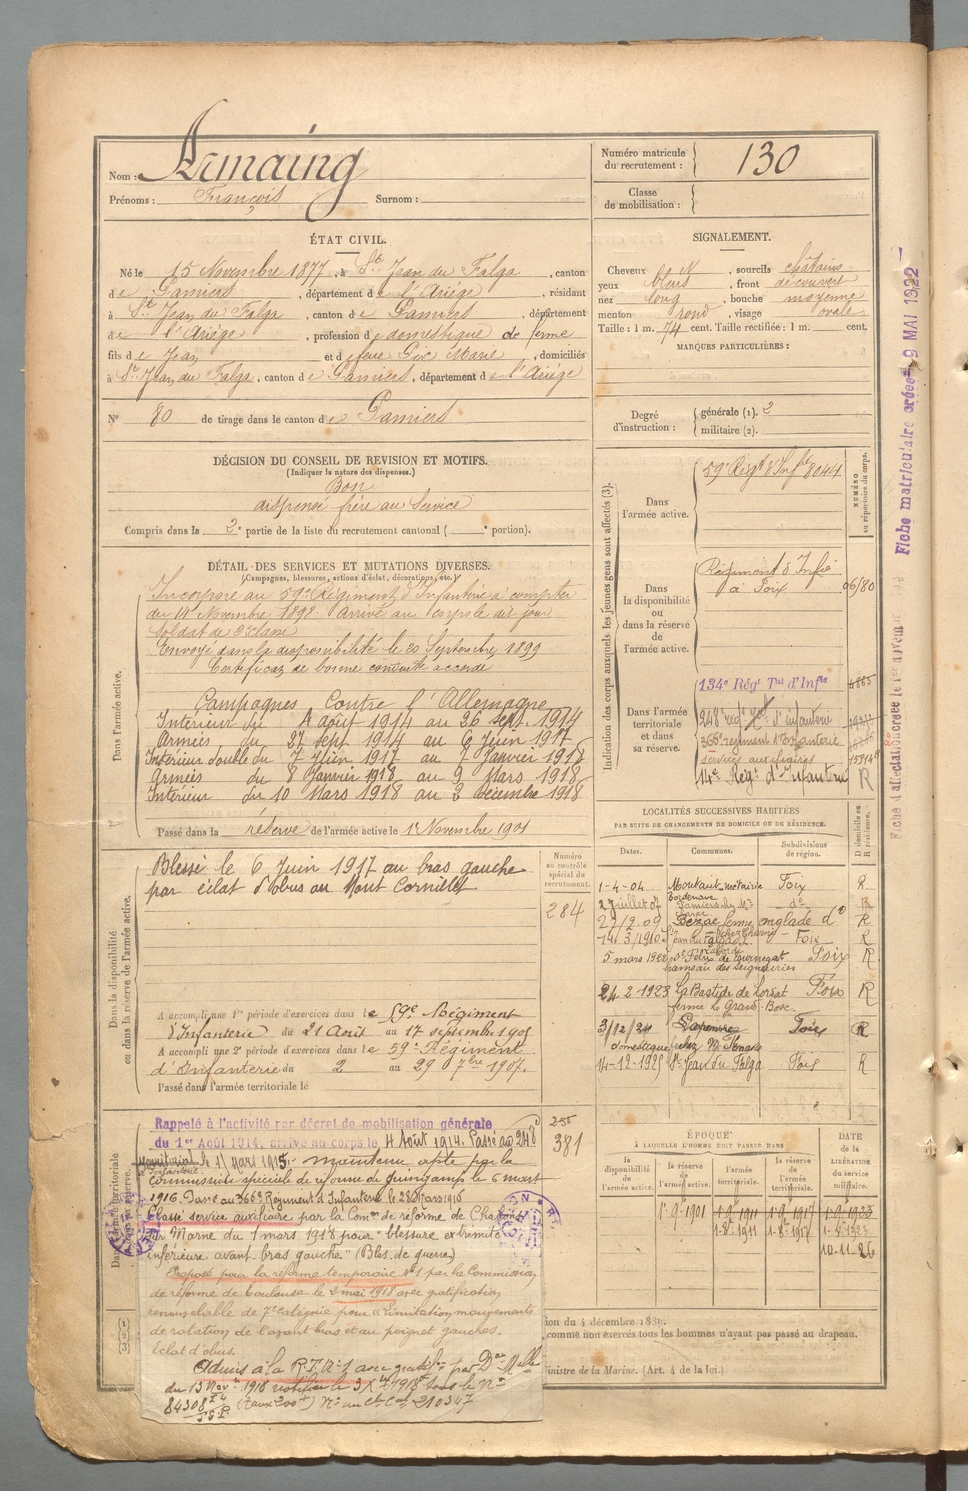 Nom : Armaing
Prénoms : François Surnom :
Numéro matricule du recrutement : 130
Classe de mobilisation :
ÉTAT CIVIL.
Né le 15 Novembre 1877, à St Jean du Falga, canton
de Pamiers, département de l'Ariége, résidant
à St Jean du Falga, canton de Pamiers, département
de l'Ariége, profession de domestique de ferme
fils de Jean et de feue Pic Marie, domiciliés
à St Jean du Falga, canton de Pamiers, département de l'Ariége
N° 80 de tirage dans le canton de Pamiers
SIGNALEMENT.
Cheveux bl N, sourcils châtains
yeux bleus, front découvert
nez long, bouche moyenne
menton rond, visage ovale
Taille : 1 m. 74 cent. Taille rectifiée : 1 m. cent.
MARQUES PARTICULIÈRES :
Degré d'instruction : générale (1). 2
militaire (2).
DÉCISION DU CONSEIL DE REVISION ET MOTIFS.
(Indiquer la nature des dispenses.)
Bon
dispensé frère au Service
Compris dans la 2e partie de la liste du recrutement cantonal ( e portion).
DÉTAIL DES SERVICES ET MUTATIONS DIVERSES.
(Campagnes, blessures, actions d'éclat, décorations, etc.)
Dans l'armée active.
Incorporé au 59e Régiment d'Infanterie à compter
du 14 Novembre 1898. Arrivé au corps le dit jour
Soldat de 2e classe
Envoyé dans la disponibilité le 20 Septembre 1899
Certificat de bonne conduite accordé
Campagnes Contre l'Allemagne
Intérieur du 4 août 1914 au 26 sept. 1914
Armées du 27 sept 1914 au 6 Juin 1917
Intérieur double du 7 Juin 1917 au 7 Janvier 1918
Armées du 8 Janvier 1918 au 9 Mars 1918
Intérieur du 10 Mars 1918 au 2 décembre 1918
Passé dans la réserve de l'armée active le 1er Novembre 1901
Indication des corps auxquels les jeunes gens sont affectés (3).
NUMÉRO au répertoire du corps.
Dans l'armée active.
59e Régt d'Infie 8044
Dans la disponibilité ou dans la réserve de l'armée active.
Régiment d'Infie
à Foix 06/80
Dans l'armée territoriale et dans sa réserve.
134e Régt Tal d'Infie
248e regt d'infanterie
366e regiment d'Infanterie
services auxiliaires
14e Régt d'Infanterie R
Dans la disponibilité ou dans la réserve de l'armée active.
Blessé le 6 Juin 1917 au bras gauche
par éclat d'obus au Mont Cornillet
Numéro au contrôle spécial du recrutement.
284
A accompli une 1re période d'exercices dans le 59e Régiment
d'Infanterie du 21 Août au 17 septembre 1905
A accompli une 2e période d'exercices dans le 59e Régiment
d'Infanterie du 2 au 29 7bre 1907.
Passé dans l'armée territoriale le
LOCALITÉS SUCCESSIVES HABITÉES
PAR SUITE DE CHANGEMENTS DE DOMICILE OU DE RÉSIDENCE.
Dates. Communes. Subdivisions de région. D domicile ou R résidence.
1-4-04 Montaut Foix R
2 Juillet 07 Pamiers do R
27/2.09 Bézac ferme englade do R
14/3/1910 St Jean du Falga Foix R
5 mars 1922 St Félix de Tournegat Foix R
hameau des seigneuries
24-2-1923 La Bastide de Lordat Foix R
3/12/24 Foix R
domestique chez Mr
14-12-1925 St Jean du Falga Foix R
Dans l'armée territoriale
Rappelé à l'activité par décret de mobilisation générale 255
du 1er Août 1914, arrivé au corps le 4 Août 1914. Passé au 248e 381
territorial le 11 mars 1915. maintenu apte par la
d'Infanterie
Commission spéciale de réforme de Guingamp le 6 mars
1916. Passé au 366e Régiment d'Infanterie le 28 Mars 1916
Classé service auxiliaire par la Comon de réforme de Chalons
sur Marne du 1 mars 1918 pour "blessure extrémité
inférieure avant-bras gauche" (Bles. de guerre)
Proposé pour la réforme temporaire n°1 par la Commission
de réforme de Toulouse le 2 mai 1918 avec gratification
renouvelable de 7e catégorie pour "Limitation mouvements
de rotation de l'avant bras et au poignet gauches.
Eclat d'obus.
Admis à la R.T. n°1 avec gratifon par Don Mlle
du 13 Nove 1918 notifiée le 3 1918 sous le n°
84308 (taux 200f) N° au 210347
ÉPOQUE
A LAQUELLE L'HOMME DOIT PASSER DANS
la disponibilité de l'armée active. la réserve de l'armée active. l'armée territoriale. la réserve de l'armée territoriale. DATE DE LA LIBÉRATION DU SERVICE militaire.
1-9-1901 1-9-1911 1-9-1917 1-9-1923
1-8-1911 1-8-1917
10-11-26
ion du 4 décembre 1889.
, comme non exercés tous les hommes n'ayant pas passé au drapeau.
inistre de la Marine. (Art. 4 de la loi.)
Fiche matriculaire créée 9 MAI 1922